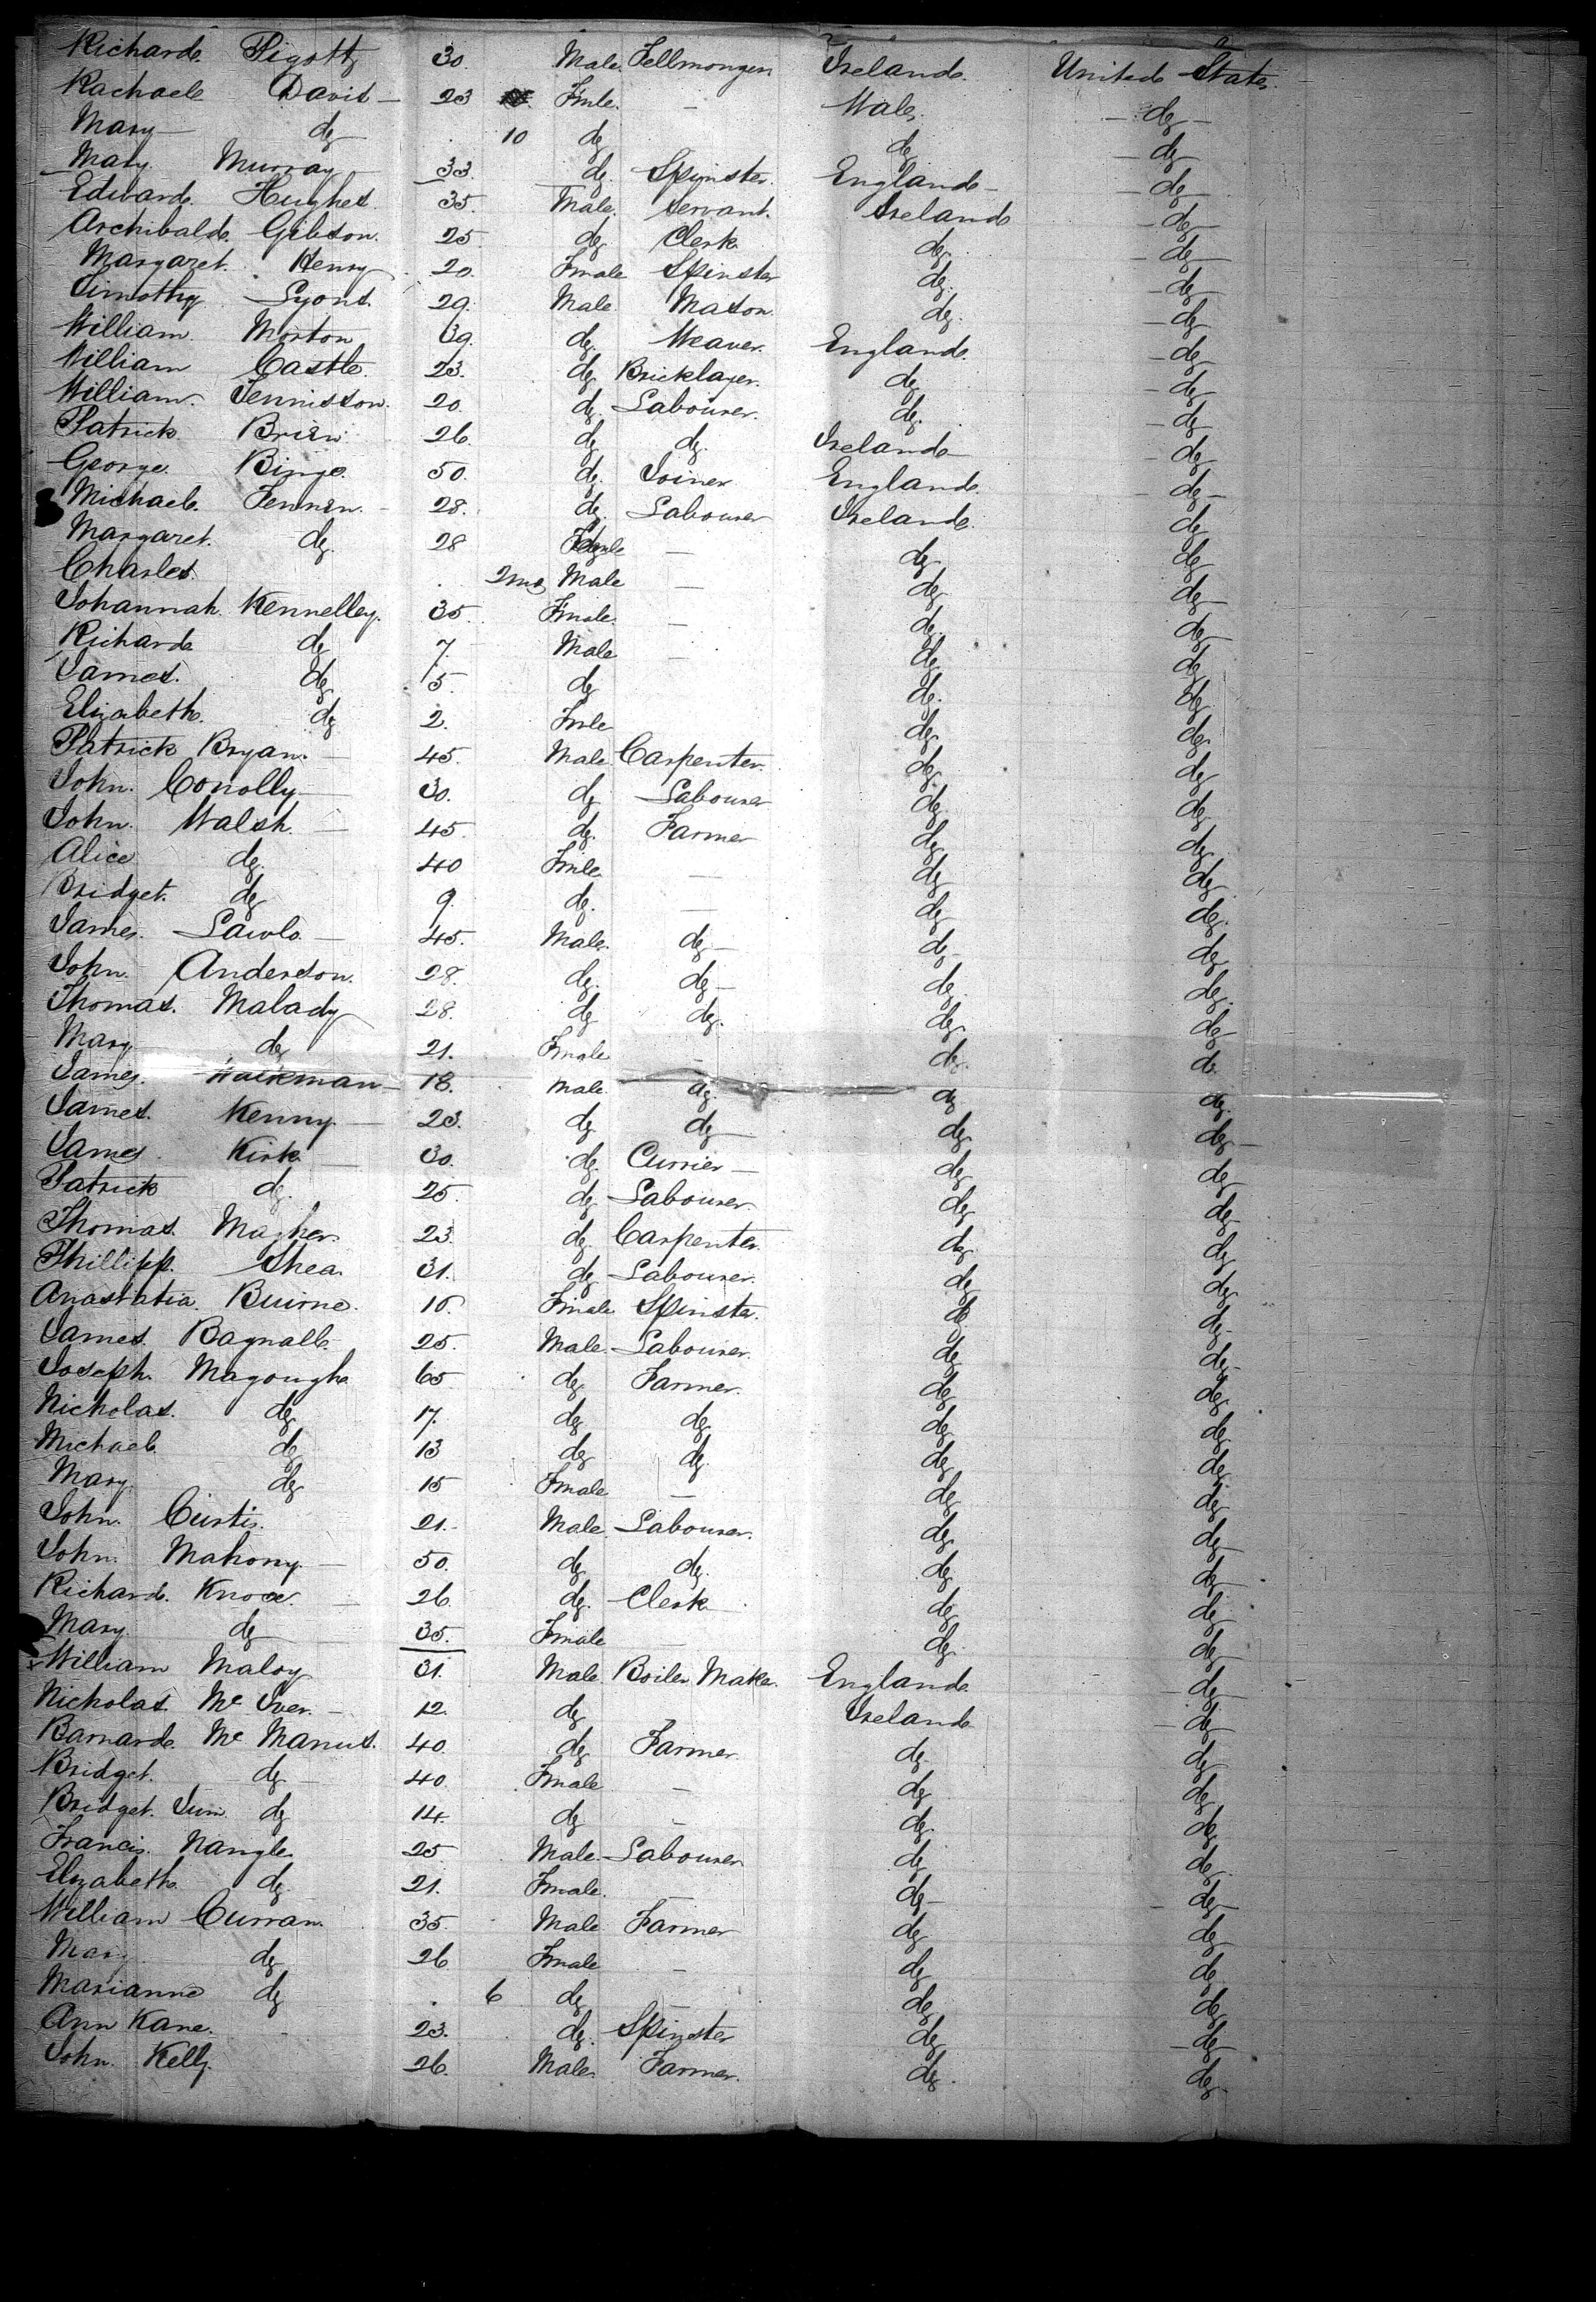 Richard Pigott 30. Male. Fellmonger Ireland. United States.
Rachael David 23 Fmle. — Wales. do
Mary do 10 do do do
Mary Murray 33. do. Spinster. England do
Edward Hughes. 35. Male. Servant. Ireland do
Archibald Gibson. 25 do Clerk do do
Margaret. Henry 20. Fmale Spinster do do
Timothy Lyons. 29. Male. Mason do. do
William. Morton 39. do. Weaver. England. do
William Castle. 23. do Bricklayer. do do
William. Tennisson. 20. do Labourer. do. do
Patrick Brien 26. do do. Ireland do
George. Binge. 50. do. Joiner England. do
Michael. Fennen. 28. do. Labourer Ireland. do
Margaret. do. 28 Fmle — do do
Charles. 2mo Male — do do
Johannah. Kennelley. 35. Fmale. — do. do
Richard do 7. Male — do do
James. do 5. do do. do
Elizabeth. do 2. Fmle do do
Patrick Bryan. 45. Male Carpenter. do do
John. Conolly 30. do Labourer do. do
John. Walsh. 45. do. Farmer do do
Alice do. 40 Fmle. — do do
Bridget. do 9. do. — do do.
James. Lawlo 45. Male. do do do
John. Anderson. 28. do. do do. do.
Thomas. Malady 28. do do. do do
Mary do 21. Fmale — do. do
James. Walkman 18. Male. do. do do.
James. Kenny. 23. do do do do
James Kirk 30. do. Currier do do
Patrick do. 25. do Labourer do do
Thomas. Magher. 23. do. Carpenter. do. do
Phillipp. Shea. 31. do Labourer. do do
Anastatia. Buirne. 16. Fmale Spinster. do do
James. Bagnall. 25. Male. Labourer. do do
Joseph. Magough 65 do Farmer. do do
Nicholas. do 17. do do do do
Michael. do 13 do do. do do
Mary. do 15 Fmale — do do
John. Curtis. 21. Male. Labourer. do do
John. Mahony. 50. do do. do. do
Richard. Knox. 26. do. Clerk do do
Mary. do 35. Fmale do. do
x William Maloy 31. Male. Boiler Maker. England do
Nicholas. Mc Iver. 12. do Ireland do
Barnard. Mc Manus. 40. do Farmer. do do
Bridget. do 40. Fmale — do do
Bridget. Jun do 14. do — do. do
Francis. Nangle. 25 Male Labourer do do
Elizabeth do. 21. Fmale. — do do
William Curran. 35. Male. Farmer do do
Mary do 26 Fmale — do do
Marianne do . 6 do — do do
Ann Kane. 23. do. Spinster do do
John. Kelly. 26. Male. Farmer. do do